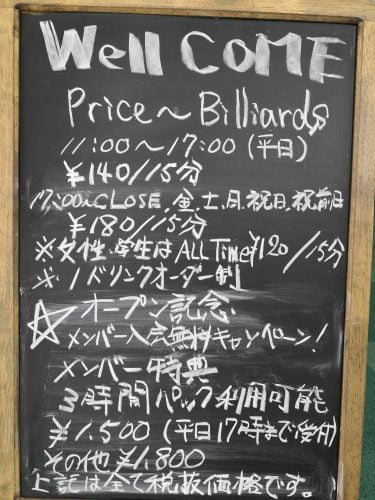 Well COME
Price～Billiards
11:00～17:00 (平日)
¥140/15分
17:00～CLOSE、金、土、日、祝日、祝前日
¥180/15分
※女性・学生は ALL Time ¥120/15分
※1ドリンクオーダー制
☆オープン記念
メンバー入会無料キャンペーン!
メンバー特典
3時間パック利用可能
¥1,500 (平日17時まで受付)
その他 ¥1,800
上記は全て税抜価格です。